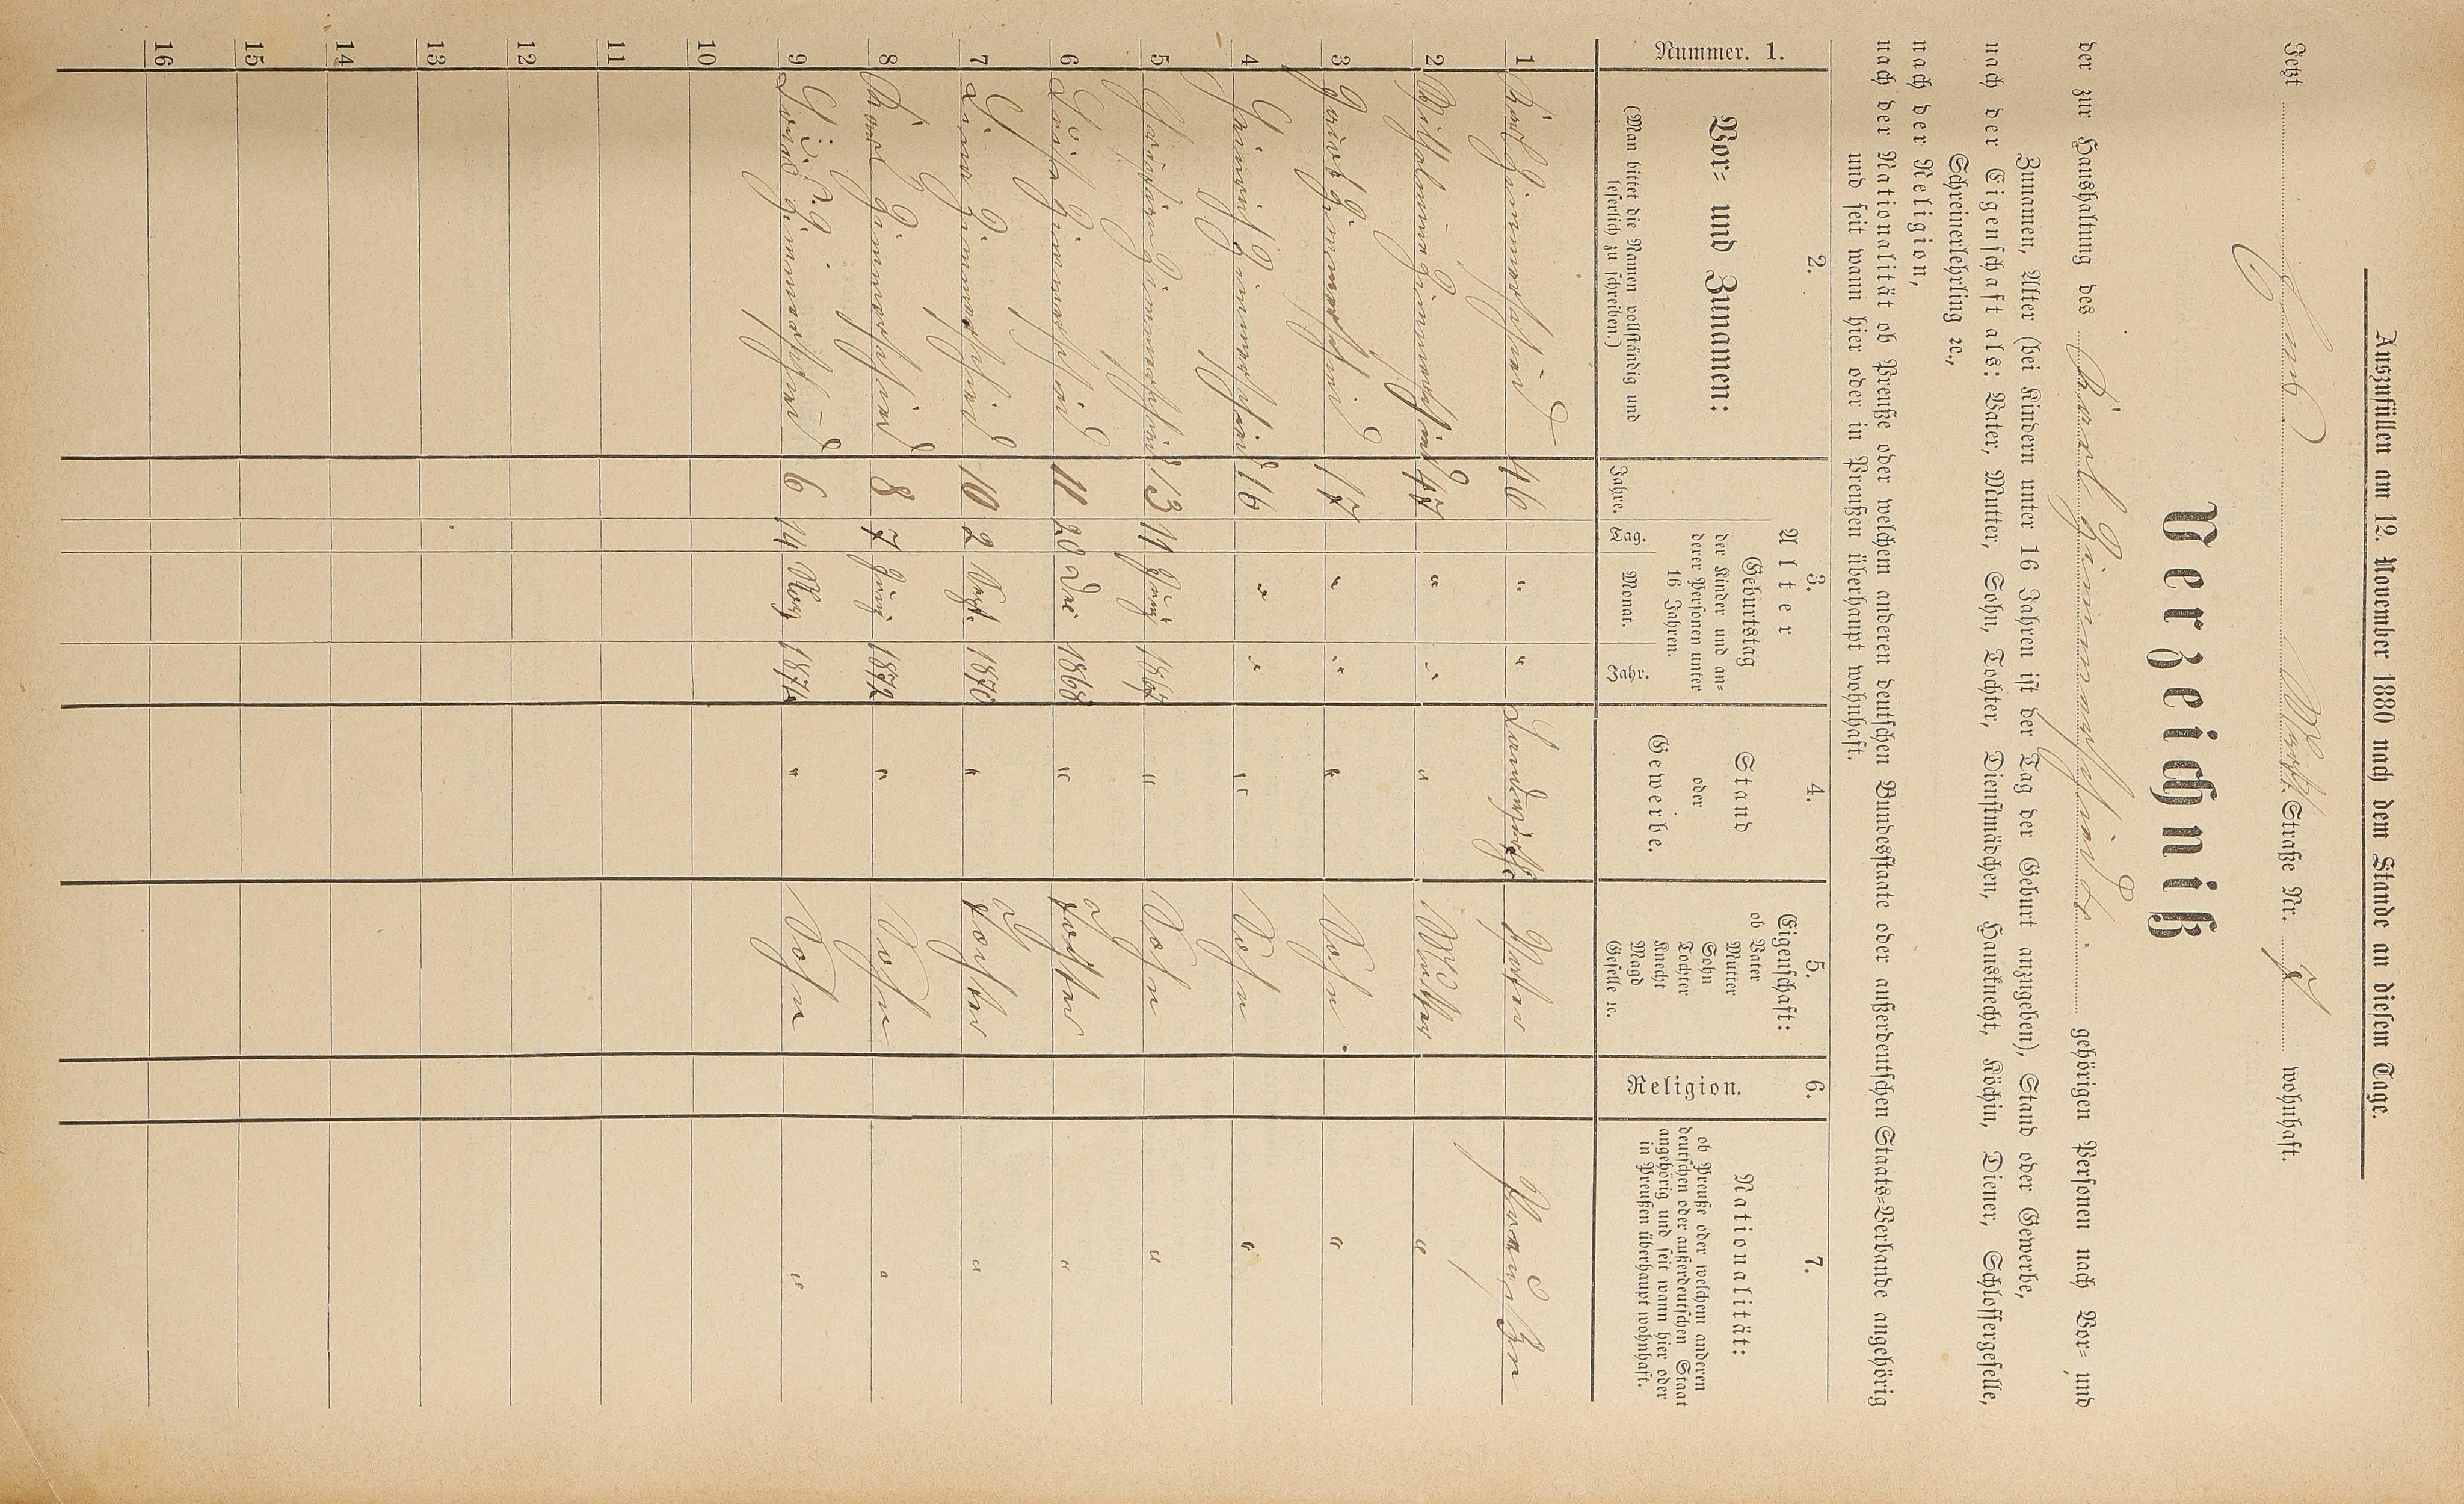 Auszufüllen am 12. November 1880 nach dem Stande an diesem Tage.
Jetzt Markt. Straße Nr. wohnhaft.
Verzeichniß
der zur Haushaltung des Karl Himmersheid. gehörigen Personen nach Vor= und
Zunamen, Alter (bei Kindern unter 16 Jahren ist der Tag der Geburt anzugeben), Stand oder Gewerbe,
nach der Eigenschaft als: Vater, Mutter, Sohn, Tochter, Dienstmädchen, Hausknecht, Köchin, Diener, Schlossergeselle,
Schreinerlehrling ꝛc.,
nach der Religion,
nach der Nationalität ob Preuße oder welchem anderen deutschen Bundesstaate oder außerdeutschen Staats=Verbande angehörig
und seit wann hier oder in Preußen überhaupt wohnhaft.
Nummer. 1.
2.
Vor= und Zunamen:
(Man bittet die Namen vollständig und
leserlich zu schreiben.)
3.
Alter
Jahre.
Geburtstag
der Kinder und an=
derer Personen unter
16 Jahren.
Tag. Monat. Jahr.
4.
Stand
oder
Gewerbe.
5.
Eigenschaft:
ob Vater
Mutter
Sohn
Tochter
Knecht
Magd
Geselle ꝛc.
6.
Religion.
7.
Nationalität:
ob Preuße oder welchem anderen
deutschen oder außerdeutschen Staat
angehörig und seit wann hier oder
in Preußen überhaupt wohnhaft.
1 Karl 46 " " Landwirth Vater Preußen
2 Wilhelmine 47 " " " Mutter "
3 17 " " " Sohn "
4 Heinrich 16 " " " Sohn "
5 13 11 Juni 1867 " Sohn "
6 Luise 11 20 Dec 1868 " Tochter "
7 Lina 10 2 Sept. 1870 " Tochter "
8 Karl 8 7 Juni 1872 " Sohn "
9 6 14 Nov 1874 " Sohn "
10
11
12
13
14
15
16